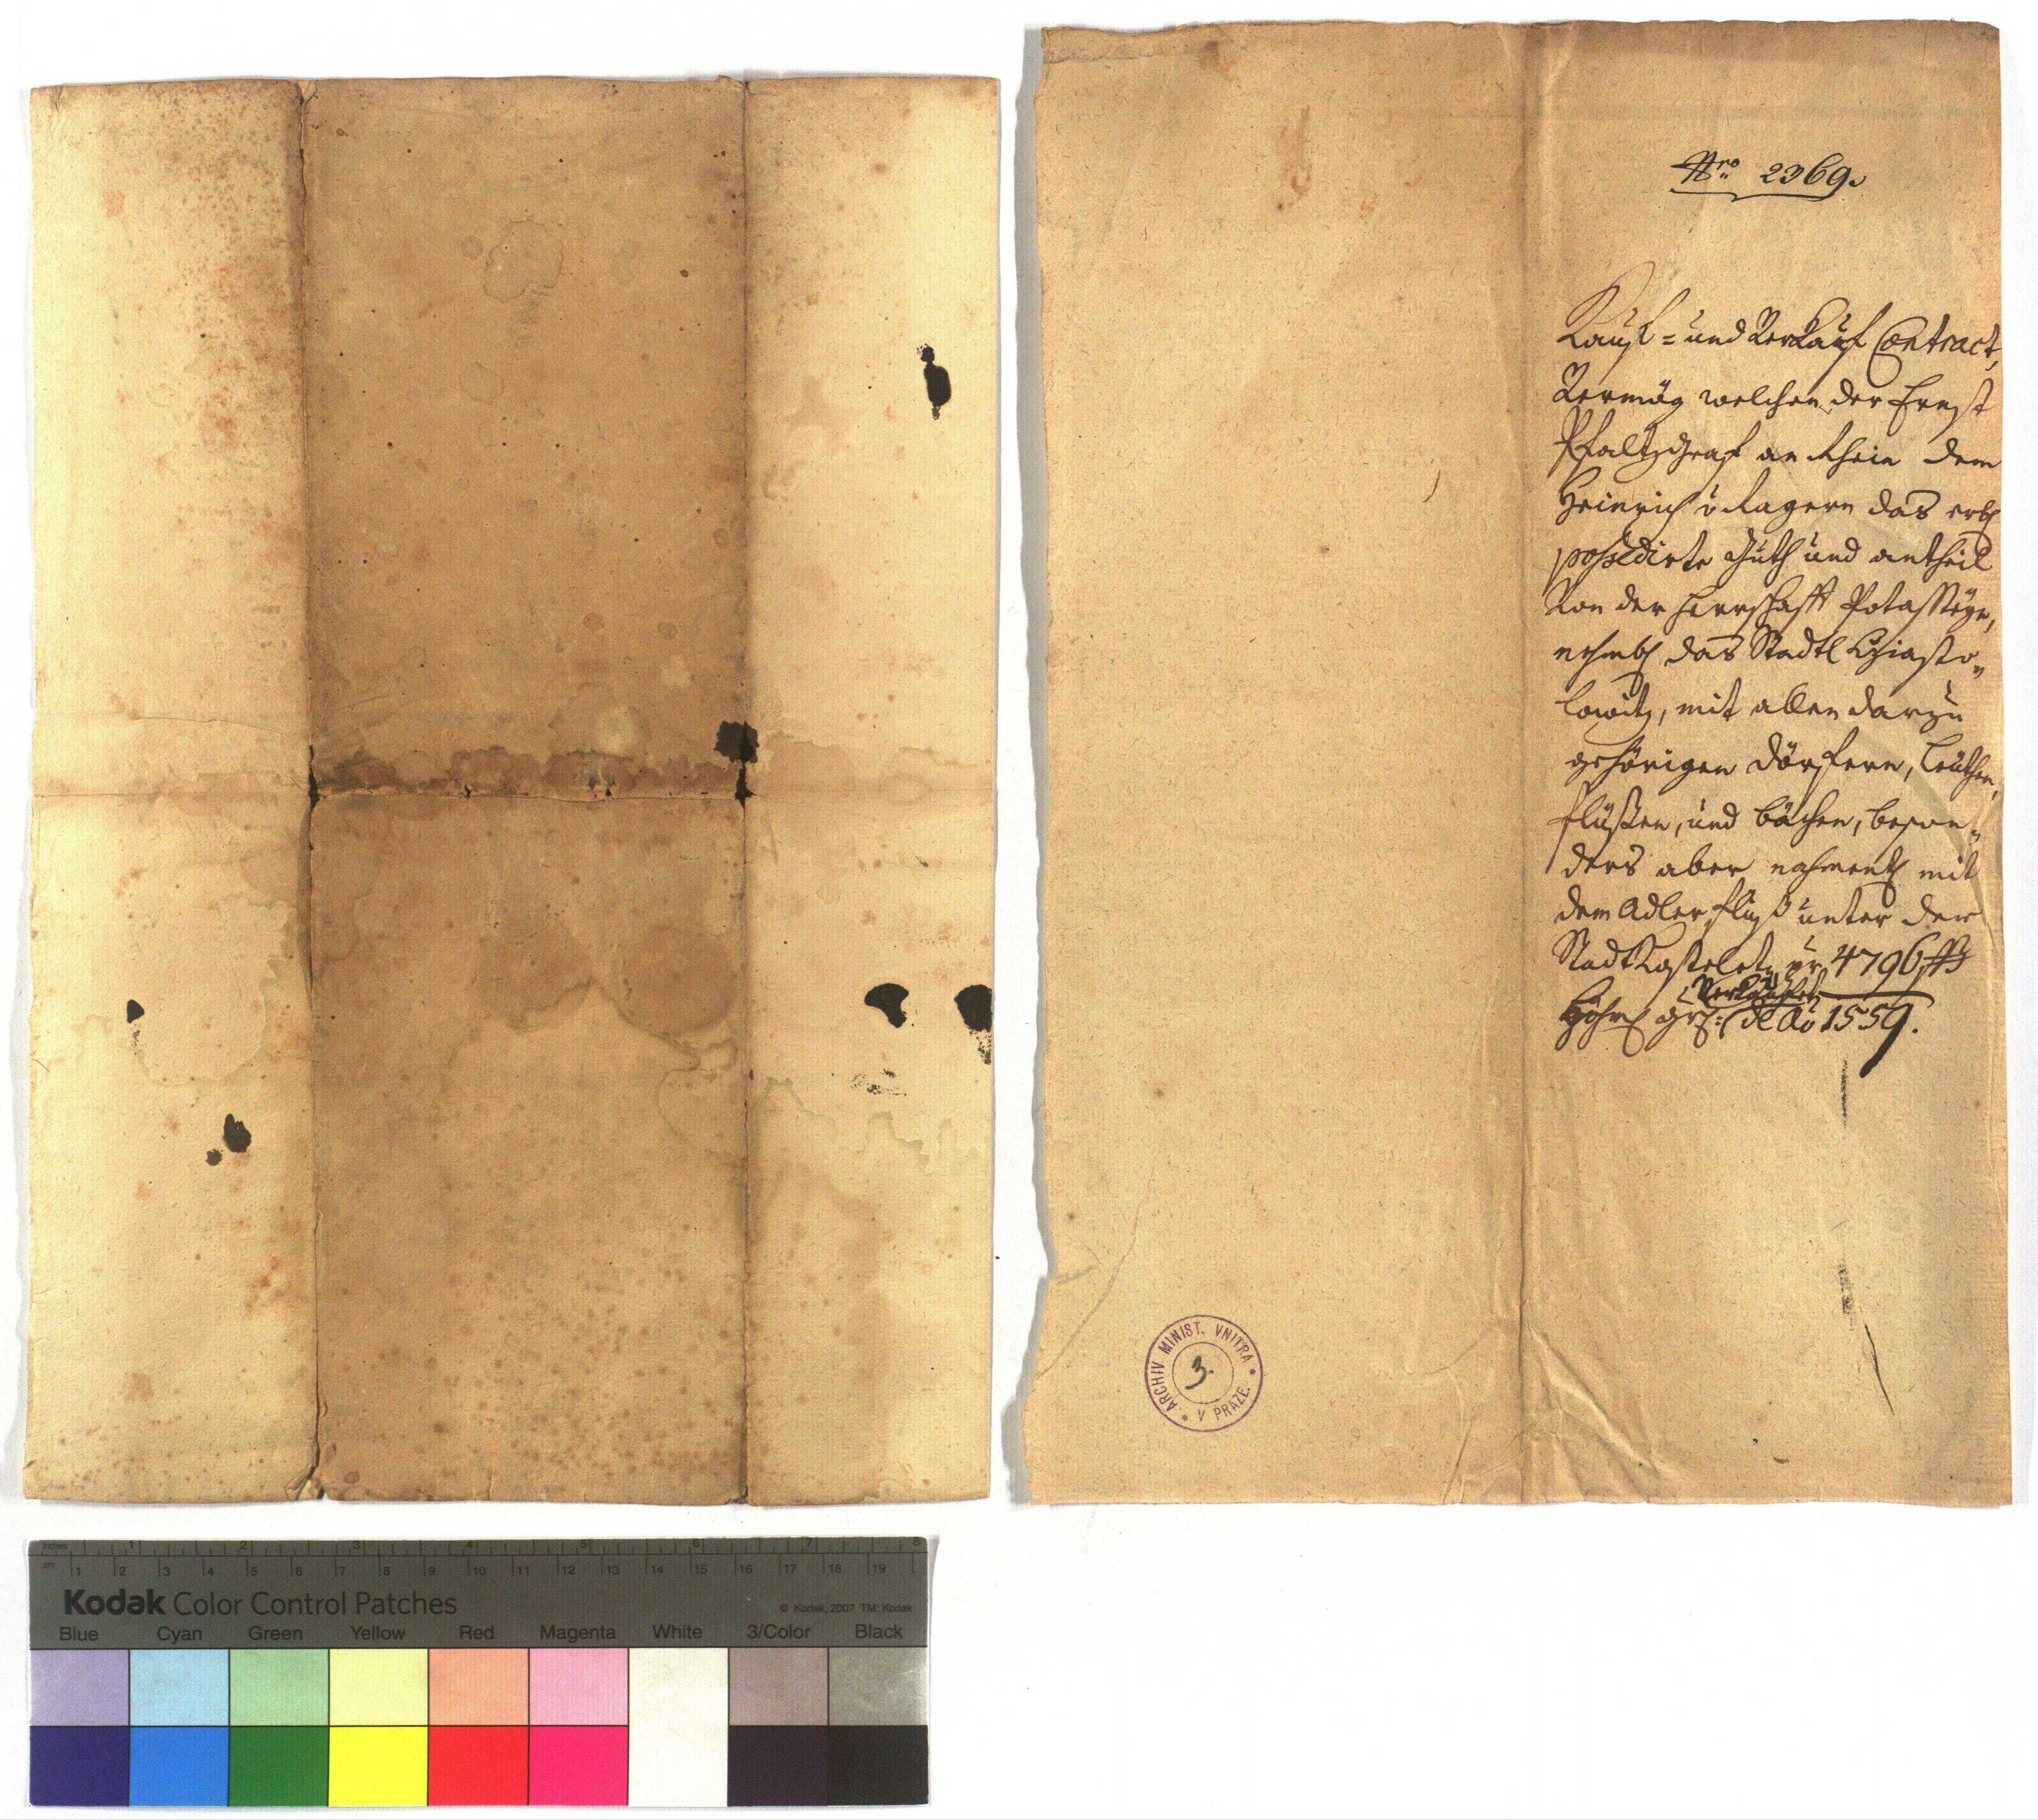 Nro 2369.
Kauf= und Verkauf Contract,
Vermög welchen der Ernst
Pfaltzgraf an Rhein dem
Heinrich v Ragern das erbl
possedirte Guth und antheil
Von der Herrschafft Potasstÿn,
nehmbl das Stadtl Cziasto„
lowitz, mit allen darzu
gehörigen Dörffern, Leüthen,
flüßen, und bächen, beson„
ders aber nahmentl mit
dem Adlerfluß unter der
Stadt Kosteletz pr 4796 ß
Verkauffet
Böhm gr: de Ao 1559.
ARCHIV MINIST. VNITRA * V PRAZE. *
3.
inches 1 2 3 4 5 6 7 8
cm 1 2 3 4 5 6 7 8 9 10 11 12 13 14 15 16 17 18 19
Kodak Color Control Patches
© Kodak, 2007 TM: Kodak
Blue Cyan Green Yellow Red Magenta White 3/Color Black